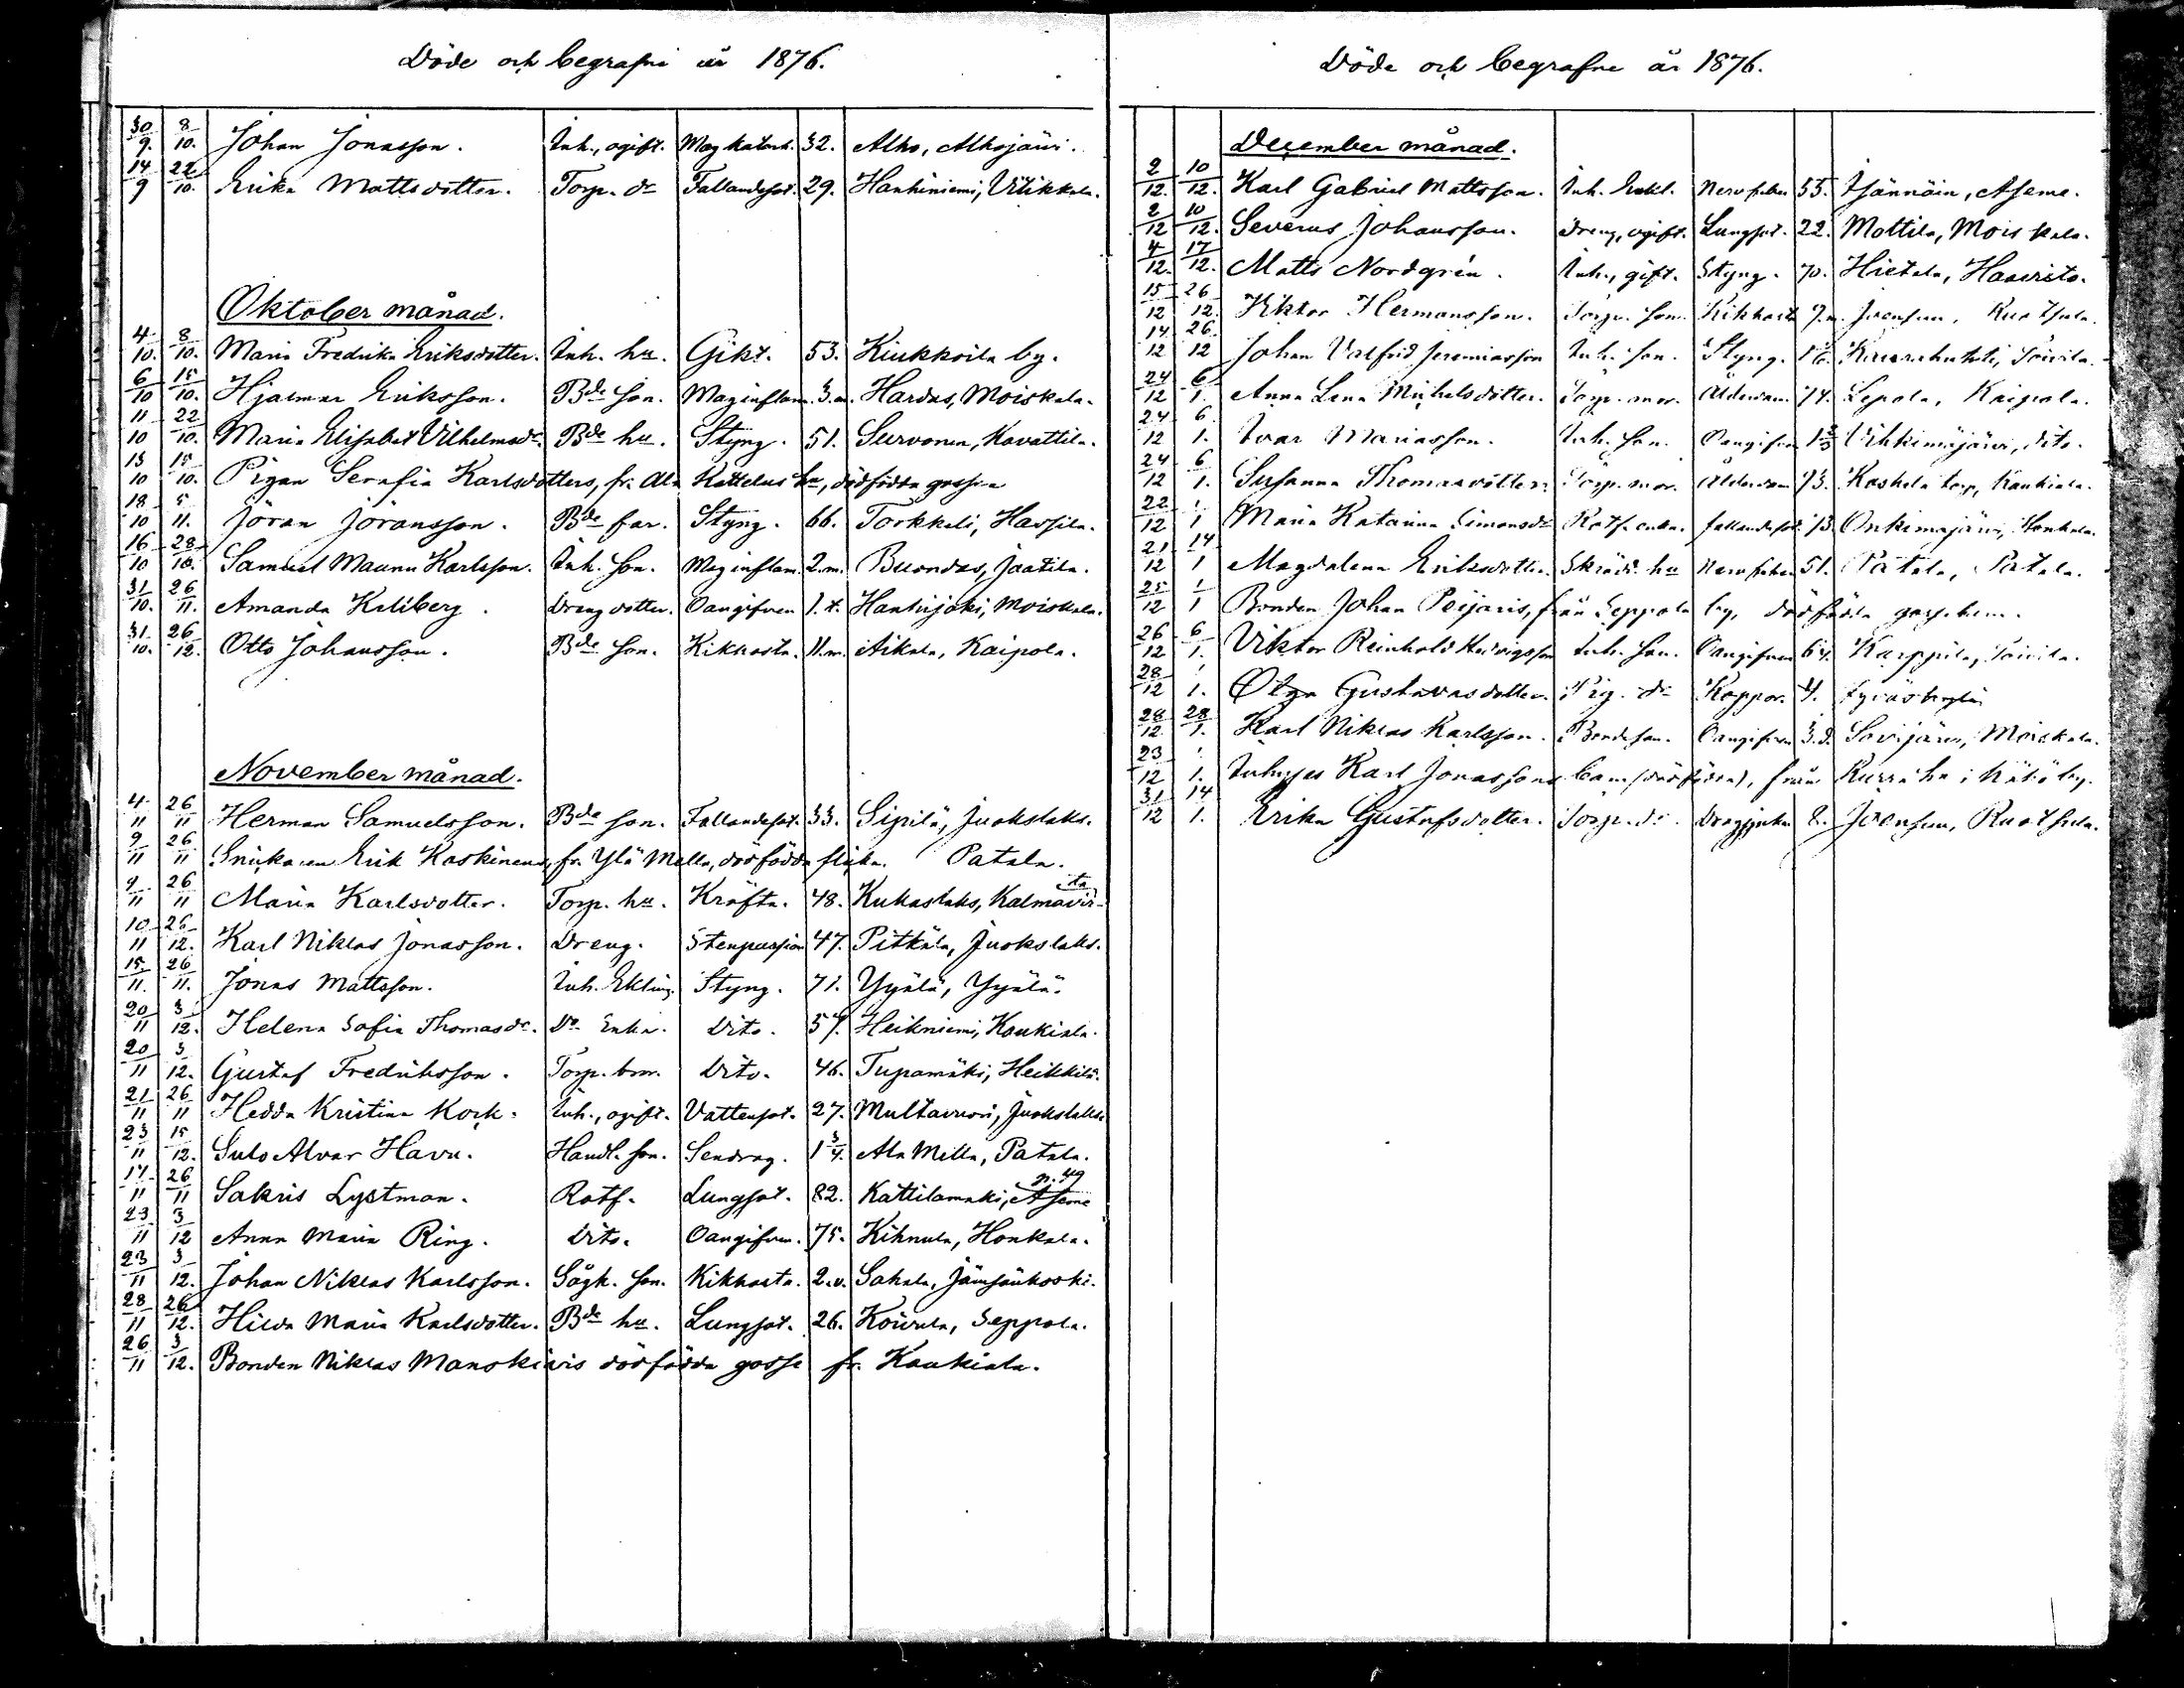 Döde och begrafne år 1876.
30/9. 8/10. Johan Jonasson. Inh., ogift. Mag katarrh. 32. Alho, Alhojärvi.
14/9 22/10. Erika Mattsdotter. Torp. dr Fallandesot. 29. Hankiniemi, Vitikkala.
Oktober månad.
4/10. 8/10. Maria Fredrika Eriksdotter. Inh. hu. Gikt. 53. Kiukkoila by.
6/10 15/10. Hjalmar Eriksson. Bde son. Maginflam. 3.m. Hardus, Moiskala.
11/10 22/10. Maria Elisabet Vilhelmsdr. Bde hu. Styng. 51. Survonen, Kavattila.
13/10 15/10. Pigan Serafia Karlsdotters, fr. Ala Kattelus hn, dödfödda gosse
18/10 5/11. Jöran Jöransson. Bde far. Styng. 66. Torkkeli, Havsila.
16/10 28/10. Samuel Maunu Karlsson. Inh. son. Maginflam. 2.m. Buondas, Jaatila.
31/10. 26/11. Amanda Kihlberg. Dreng dotter. Oangifven 1. Hankijoki, Moiskala.
31/10. 26/12. Otto Johansson. Bde son. Kikhosta. 11.m. Aikala, Kaipola.
November månad.
4/11 26/11 Herman Samuelsson. Bde son. Fallandesot. 33. Sipilä, Juokslaks.
9/11 26/11 Snickaren Erik Koskinens, fr. Ylä Mella, dödfödda flicka. Patala.
9/11 26/11 Maria Karlsdotter. Torp. hu. Kräfta. 48. Kukaslaks, Kalmavirta
10/11 26/12. Karl Niklas Jonasson. Dreng. Stenpassion 47. Pitkälä, Juokslaks.
15/11. 26/11. Jonas Mattsson. Inh. Enkling. Styng. 71. Yijälä, Yijälä.
20/11 3/12. Helena Sofia Thomasdr. Do Enka. Dito. 57. Heikniemi, Koukiala.
20/11 3/12. Gustaf Fredriksson. Torp. bror. Dito. 46. Tupamäki, Heikkilä.
21/11 26/11 Hedda Kristina Kock. Inh., ogift. Vattensot. 27. Multavuori, Juokslaks.
23/11 15/12. Sulo Alvar Havu. Handl. son. Sendrag. 1 3/4. Ala Mella, Patala.
17/11 26/11 Sakris Lystman. Rotf. Lungsot. 82. Kattilamäki, Aseme n. 49
23/11 3/12 Anna Maria Ring. Dito. Oangifven. 75. Kihnula, Honkala.
23/11 3/12. Johan Niklas Karlsson. Sågk. son. Kikhosta. 2.v. Sahala, Jämsänkoski.
28/11 26/12. Hilda Maria Karlsdotter. Bde hu. Lungsot. 26. Koivula, Seppola.
26/11 3/12. Bonden Niklas Manskivis dödfödda gosse fr. Koukiala.
Döde och begrafne år 1876.
December månad.
2/12. 10/12. Karl Gabriel Mattsson. Inh. Enkl. Nervfeber 55. Isännäin, Aseme.
2/12 10/12. Severus Johansson. Dreng, ogift. Lungsot. 22. Mottila, Moiskala.
4/12. 17/12. Matts Nordgrén. Inh., gift. Styng. 70. Hietala, Haavisto.
15/12 26/12. Viktor Hermansson. Torp. son. Kikhosta 9.m. Joensuu, Ruotsula.
14/12 26/12 Johan Valfrid Jeremiasson Inh. son. Styng. Toivila.
24/12 6/1. Anna Lena Michelsdotter. Torp. mor. Ålderdom 74. Lepola, Kaipola.
24/12 6/1. Ivar Mariasson. Inh. son. Oangifven 1 2/3 Vihkimäjärvi, dito.
24/12 6/1. Susanna Thomasdotter. Torp. mor. Ålderdom 73. Koskela torp, Koukiala.
22/12 1/1 Maria Katarina Simonsdr Rotf. enka. fallandesot. 73. Onkimajärvi, Honkala.
21/12 14/1 Magdalena Eriksdotter. Skrädd. hu Nervfeber 51. Patala, Patala.
25/12 1/1 Bonden Johan Peijaris, från Seppola by, dödfödda gossebarn.
26/12 6/1. Viktor Reinhold Hedvigsson Inh. son. Oangifven 6 Karppila, Toivila.
28/12 1/1. Olga Gustavasdotter. Pig. dr Koppor. 4.
28/12. 28/1. Karl Niklas Karlsson. Bondeson. Oangifven 3.d. Savijärvi, Moiskala.
23/12 1/1. Inhyses Karl Jonassons barn (dödfödda), från Kurra hn i Kätkö by.
31/12 14/1. Erika Gustafsdotter. Torp. dr. Dragsjuka 8. Joensuu, Ruotsula.